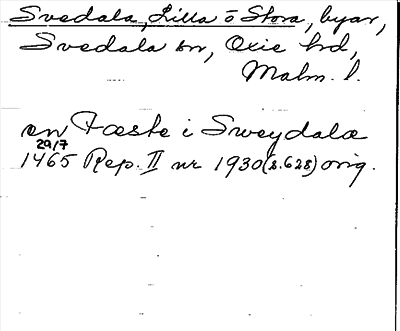 Svedala, Lilla o Stora, byar,
Svedala sn, Oxie hd,
Malm. l.
en Fæste i Sweydalæ
29/7
1465 Rep. II nr 1930 (s. 628) orig.